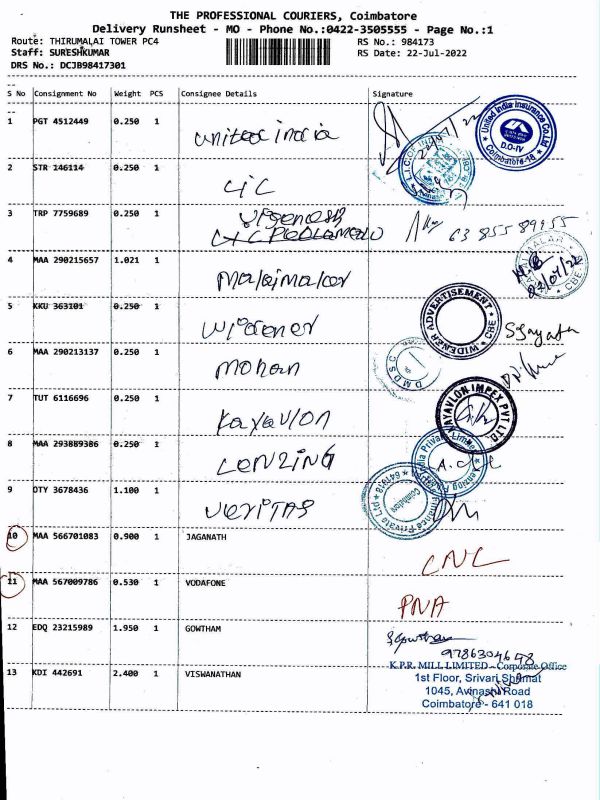 THE PROFESSIONAL COURIERS, Coimbatore
Delivery Runsheet - MO - Phone No.:0422-3505555 - Page No.:1
Route: THIRUMALAI TOWER PC4 RS No.: 984173
Staff: SURESHKUMAR RS Date: 22-Jul-2022
DRS No.: DCJB98417301
S No Consignment No Weight PCS Consignee Details Signature
1 PGT 4512449 0.250 1 United india
United India Insurance Co.Ltd D.O-IV Coimbatore-18
2 STR 146114 0.250 1 LIC
L.I.C. OF INDIA
3 TRP 7759689 0.250 1 63 855 89955
4 MAA 290215657 1.021 1 Malaimalar
5 KKU 363101 0.250 1 Widener
WIDENER ADVERTISEMENT CBE
6 MAA 290213137 0.250 1 Mohan
DMDSC
7 TUT 6116696 0.250 1 Kayavlon
KAYAVLON IMPEX PVT LTD
8 MAA 293889386 0.250 1 LENZING
9 DTY 3678436 1.100 1 VERITAS
Finance Private Ltd Coimbatore 641018
10 MAA 566701083 0.900 1 JAGANATH CNC
11 MAA 567009786 0.530 1 VODAFONE PNA
12 EDQ 23215989 1.950 1 GOWTHAM Sgowtham
9786304698
13 KDI 442691 2.400 1 VISWANATHAN K.P.R. MILL LIMITED - Corporate Office
1st Floor, Srivari Shrimat
1045, Avinashi Road
Coimbatore - 641 018